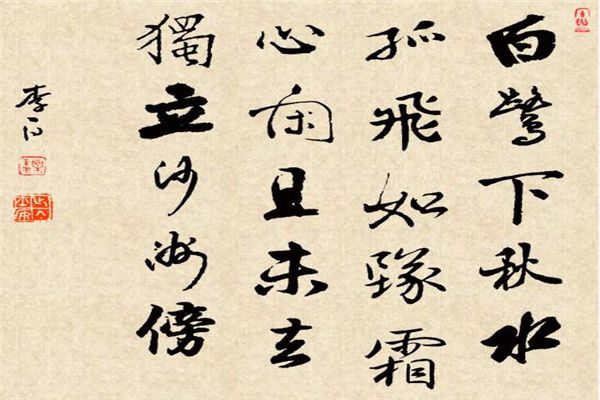 白鷺下秋水
孤飛如墜霜
心閑且未去
獨立沙洲傍
李